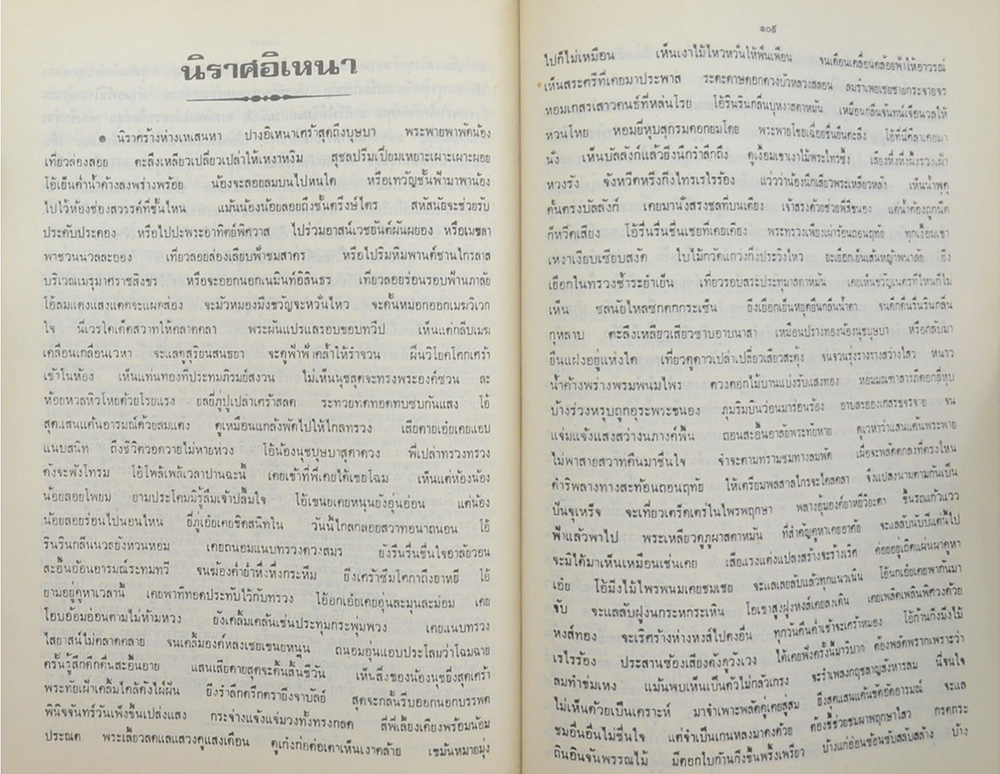 นิราศอิเหนา
๑ นิราศร้างห่างเหเสนหา ปางอิเหนาเศร้าสุดถึงบุษบา พระพายพาพัดน้อง
เที่ยวล่องลอย ตะลึงเหลียวเปลี่ยวเปล่าให้เหงาหงิม สุชลปริ่มเปี่ยมเหยาะเผาะเผาะผอย
โอ้เย็นค่ำน้ำค้างลงพร่างพร้อย น้องจะลอยลมบนไปหนใด หรือเทวัญชั้นฟ้ามาพาน้อง
ไปไว้ห้องช่องสวรรค์ที่ชั้นไหน แม้นน้องน้อยลอยถึงชั้นตรึงษ์ไตร สหัสนัยจะช่วยรับ
ประคับประคอง หรือไปปะพระอาทิตย์พิศวาส ไปร่วมอาสน์เวชยันต์ผันผยอง หรือเมขลา
พาชวนนวลละออง เที่ยวลอยล่องเลียบฟ้าชมสาคร หรือไปริมหิมพานต์ชานไกรลาส
บริเวณเมรุมาศราชสิงขร หรือจะออกนอกเนมินท์อิสินธร เที่ยวลอยร่อนรอบฟ้านภาลัย
โอ้ลมแดงแสงแดดจะแผดส่อง จะมัวหมองมิ่งขวัญจะหวั่นไหว จะดั้นหมอกออกเมฆวิเวก
ใจ นี่เวรใดเด็ดสวาทให้คลาดคลา พระผันแปรแลรอบขอบทวีป เห็นแต่กลีบเมฆ
เคลื่อนเกลื่อนเวหา จะแลดูสุริยนสนธยา จะดูฟ้าฟ้าคล้ำให้รำจวน ฝืนวิโยคโศกเศร้า
เข้าในห้อง เห็นแท่นทองที่ประทมภิรมย์สงวน ไม่เห็นนุชสุดจะทรงพระองค์ซวน ละ
ห้อยหวลหิวโหยด้วยโรยแรง ยลยี่ภู่ปูเปล่าเศร้าสลด ระทวยทดทอดทบซบกันแสง โอ้
สุดแสนแค้นอารมณ์ด้วยลมแดง ดูเหมือนแกล้งพัดไปให้ไกลทรวง เสียดายเอ๋ยเคยแอบ
แนบสนิท ถึงชีวิตวอดวายไม่หายหวง โอ้น้องนุชบุษบาสุดาดวง พี่เปล่าทรวงทรวง
ดังจะพังโทรม โอ้โพล้เพล้เวลาปานฉะนี้ เคยเข้าที่พี่เคยได้เชยโฉม เห็นแต่ห้องน้อง
น้อยลอยโพยม ยามประโคมมิรู้ลืมเจ้าปลื้มใจ โอ้เขนยเคยหนุนยังอุ่นอ่อน แต่น้อง
น้อยลอยร่อนไปนอนไหน ยี่ภู่เอ๋ยเคยชิดสนิทใน วันนี้ไกลกลอยสวาทอนาถนอน โอ้
รินรินกลิ่นนวลยังหวนหอม เคยถนอมแนบทรวงดวงสมร ยังรื่นรื่นชื่นใจอาลัยวอน
สะอื้นอ้อนอารมณ์ระทมทวี จนฆ้องค่ำย่ำหึ่งหึ่งกระหึม ยิ่งเศร้าซึมโศกาถึงยาหยี โอ้
ยามอยู่คูหาเวลานี้ เคยพาทีทอดประทับไว้กับทรวง โอ้อกเอ๋ยเคยอุ่นละมุนละม่อม เคย
โอบอ้อมอ่อนตามไม่ห้ามหวง ยังเคลิ้มเคล้นเช่นประทุมกระพุ่มพวง เคยแนบทรวง
ไสยาสน์ไม่คลาดคลาย จนเคลิ้มองค์หลงเชยเขนยหนุน ถนอมอุ่นแอบประโลมว่าโฉมฉาย
ครั้นรู้สึกดึกดื่นสะอื้นอาย แสนเสียดายสุดจะดิ้นสิ้นชีวัน เห็นสิ่งของน้องนุชยิ่งสุดเศร้า
พระทัยเฝ้าเคลิ้มใคล้ดังใฝ่ฝัน ยิ่งรำลึกตรึกตรายิ่งจาบัลย์ สุดจะกลั้นรีบออกนอกบรรพต
พินิจจันทร์วันเพ็งขึ้นเปล่งแสง กระจ่างแจ้งแจ่มวงทั้งทรงกลด สี่พี่เลี้ยงเคียงพร้อมน้อม
ประณต พระเลี้ยวลดแลแสวงดูแสงเดือน ดูเก๋งก่ายค่อต่อตาเห็นเงาคล้าย เขม้นหมายมุ่ง
๑๐๙
ไปก็ไม่เหมือน เห็นเงาไม้ไหวหวั่นให้ฟั่นเฟือน จนเดือนเคลื่อนคล้อยฟ้าให้อาวรณ์
เห็นสระศรีที่เคยมาประพาส ระดะดาษดอกดวงบัวหลวงสลอน ลมรำเพยเชยชายกระจายจร
หอมเกสรเสาวคนธ์ที่หล่นโรย โอ้รินรินกลิ่นบุหงาสุดาหมัน เหมือนกลิ่นจันทน์เจือนวลให้
หวนโหย หอมยี่หุบสุกรมดอกยมโดย พระพายโชยเฉื่อยชื่นยืนตะลึง โอ้ที่นี่ศิลาเคยมา
นั่ง เห็นบัลลังก์แล้วยิ่งนึกรำลึกถึง ดูเงื้อมเขาเงาไม้พระไทรซึ้ง เสียงหึ่งหึ่งผึ้งรวงเฝ้า
หวงรัง จังหวีดหริ่งกิ่งไทรเรไรร้อง แว่วว่าน้องนึกเสียวพระเหลียวหลัง เห็นน้ำพุดู
ดั้นตรงบัลลังก์ เคยมานั่งสรงชลที่บนเตียง เจ้าสรงด้วยช่วยพี่สีขนอง แต่น้ำต้องถูกนิด
ก็หวีดเสียง โอ้รื่นรื่นชื่นเชยที่เคยเคียง พระทรวงเพียงเผ่าร้อนถอนฤทัย ทุกเงื้อมเขา
เหงาเงียบเซียบสงัด ใบไม้กวัดแกว่งกิ่งประวิงไหว ยะเยือกเย็นเส้นหญ้าพนาลัย ยิ่ง
เยือกในทรวงช้ำระยำเย็น เที่ยวรอบสระประทุมาสุดาหมัน เคยเห็นขวัญเนตรที่ไหนก็ไม่
เห็น ชลนัยน์ไหลซกตกกระเซ็น ยิ่งเยือกเย็นหยุดยืนกลืนน้ำตา จนดึกดื่นรื่นรินกลิ่น
กุหลาบ ตะลึงเหลียวเสียวซาบอาบนาสา เหมือนปรางทองน้องนุชบุษบา หรือกลับมา
ยืนแฝงอยู่แห่งใด เที่ยวดูดาวเปล่าเปลี่ยวเสียวสะดุ้ง จนจวนรุ่งรางรางสว่างไสว หนาว
น้ำค้างพร่างพรมพนมไพร ดวงดอกไม้บานแบ่งรับแสงทอง หอมมณฑาสารภีดอกยี่หุบ
บ้างร่วงหรุบถูกอุระพระขนอง ภุมรินบินว่อนมาร่อนร้อง อาบละอองเกสรขจรจาย จน
แจ่มแจ้งแสงสว่างนภางค์พื้น ถอนสะอื้นอาลัยพระทัยหาย ดูเวหาว่าแสนแค้นพระพาย
ไม่พาสายสวาทคืนมาชื่นใจ จำจะตามทรามชมทางลมพัด เผื่อจะพลัดตกลงที่ตรงไหน
ดำริพลางทางสะท้อนถอนฤทัย ให้เตรียมพลสกลไกรจะไคลคลา จึ่งแปลงนามตามกันเป็น
ปันจุเหร็จ จะเที่ยวเตร็ดเตร่ในไพรพฤกษา พลางอุ้มองค์ยาหยีวิยะดา ขึ้นรถแก้วแวว
ฟ้าแล้วพาไป พระเหลียวดูภูผาสุดาหมัน ที่สำคัญคูหาเคยอาศัย จะแลลับนับปีแต่นี้ไป
จะมิได้มาเห็นเหมือนเช่นเคย เสียแรงแต่งแปลงสร้างจะร้างเริด ค่อยอยู่เถิดแผ่นผาคูหา
เอ๋ย โอ้มิ่งไม้ไพรพนมเคยชมเชย จะแลเลยลับแล้วทุกแนวเนิน โอ้นกเอ๋ยเคยพากันมา
จับ จะแลลับฝูงนกระหกระเหิน โอ้เขาสูงฝูงหงส์เคยลงเดิน เคยเพลิดเพลินพิศวงด้วย
หงส์ทอง จะเริศร้างห่างหงส์ไปดงอื่น ทุกวันคืนค่ำเช้าจะเศร้าหมอง โอ้ก้านกิ่งมิ่งไม้
เรไรร้อง ประสานซ้องเสียงดังดูวังเวง ได้เคยฟังครั้งนี้มาวิบาก ต้องพลัดพรากเพราะว่า
ลมทำข่มเหง แม้นพบเห็นเป็นตัวไม่กลัวเกรง จะรำเพลงกฤชสาญสังหารลม นี่จนใจ
ไม่เห็นด้วยเป็นเคราะห์ มาจำเพาะพลัดคู่เคยสู่สม ยิ่งสุดแสนแค้นขัดอัดอารมณ์ จะแล
ชมอื่นอื่นไม่ชื่นใจ แต่จำเป็นเกณหลงมาดงด้วย ต้องชี้ช่วยชมผาพฤกษาไสว กรดกระ
ถินอินจันพรรณไม้ มีดอกใบก้านกิ่งขึ้นพริ้งเพรียว บ้างแก่อ่อนซ้อนซับสลับสล้าง บ้าง